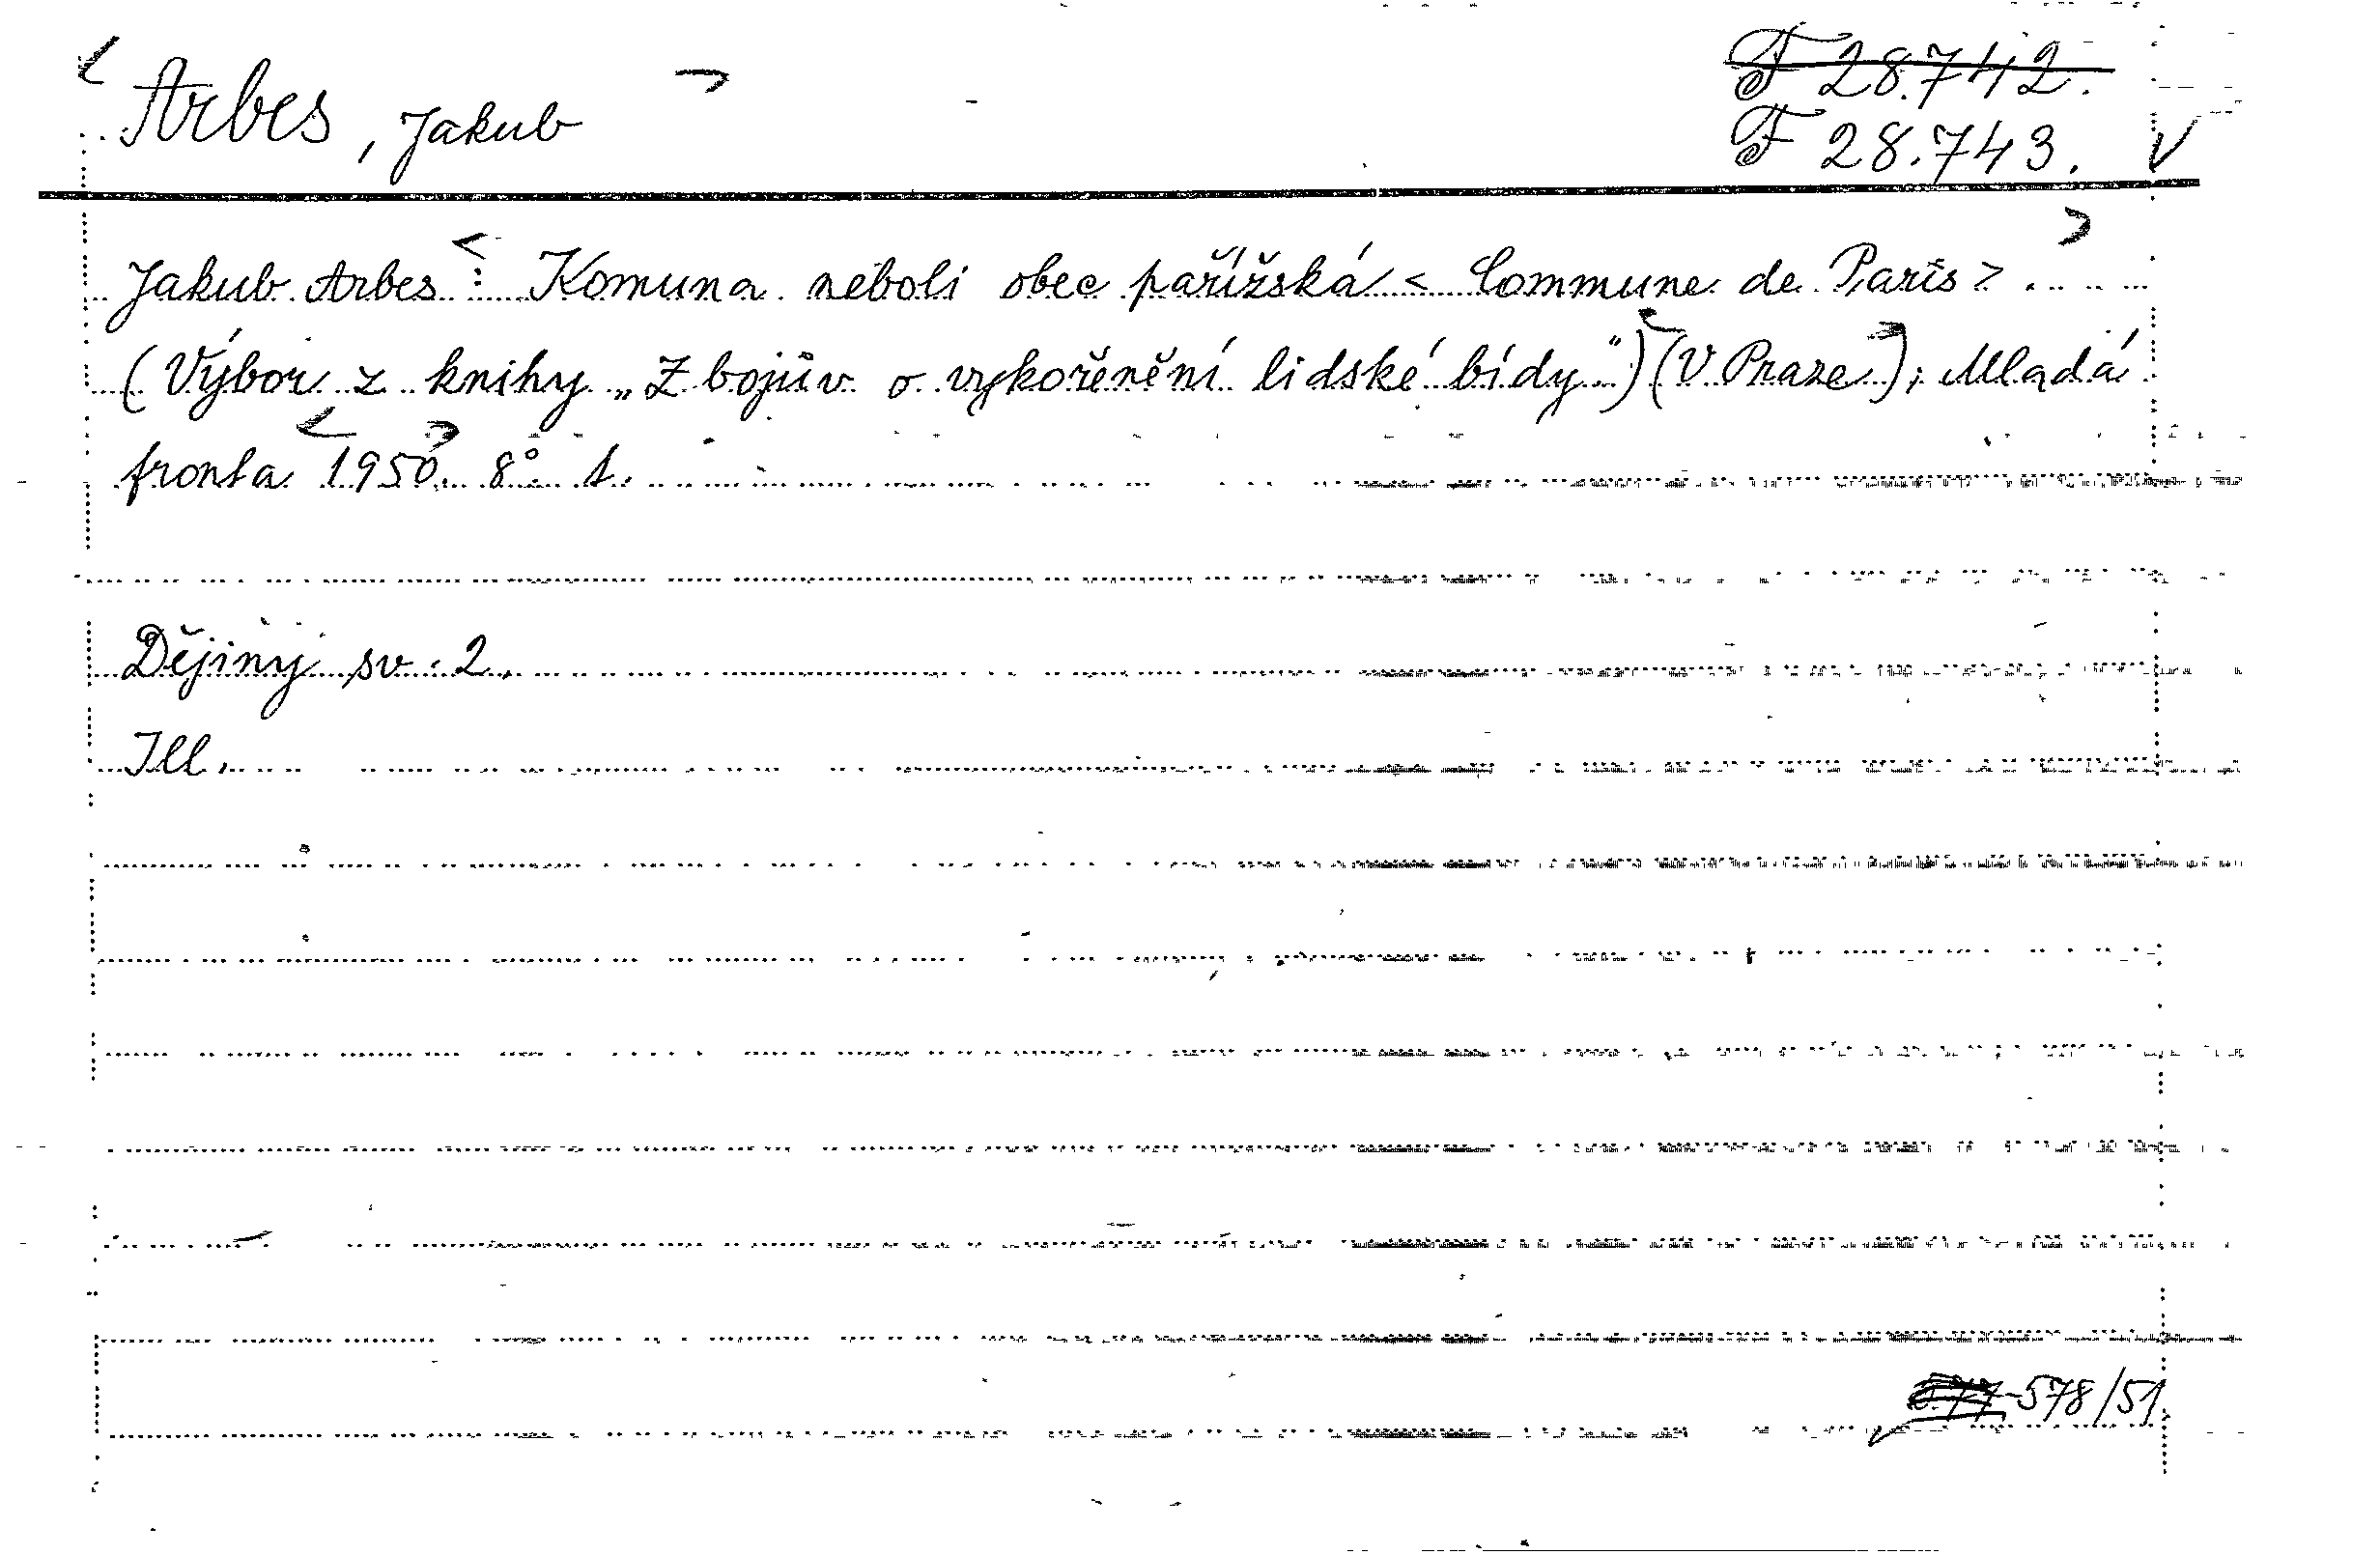 F 28.742.
Arbes, Jakub
F 28.743.
Jakub Arbes: Komuna neboli obec pařížská < Commune de Paris >.
(Výbor z knihy „Z bojův o vykořenění lidské bídy.") (V Praze), Mladá
fronta 1950. 8° t.
Dějiny sv. 2.
Ill.
577-578/51